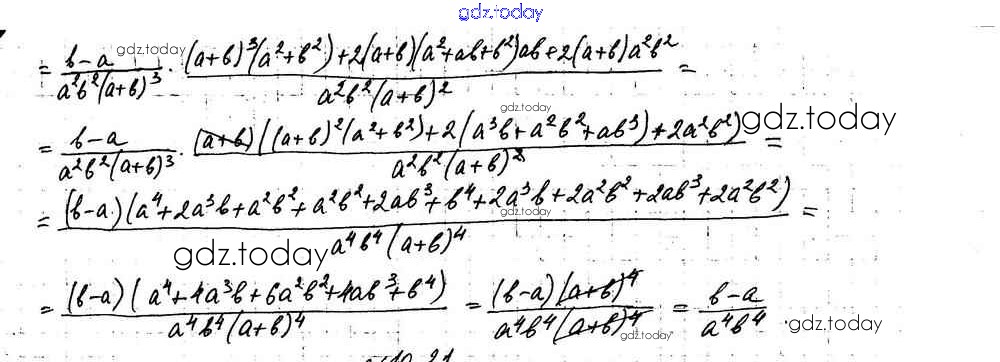 gdz.today
= (b-a)/(a²b²(a+b)³) · ((a+b)³(a²+b²)+2(a+b)(a²+ab+b²)ab+2(a+b)a²b²)/(a²b²(a+b)²) =
gdz.today
gdz.today
= (b-a)/(a²b²(a+b)³) · ((a+b)((a+b)²(a²+b²)+2(a³b+a²b²+ab³)+2a²b²))/(a²b²(a+b)²) =
gdz.today
= ((b-a)(a⁴+2a³b+a²b²+a²b²+2ab³+b⁴+2a³b+2a²b²+2ab³+2a²b²))/(a⁴b⁴(a+b)⁴) =
gdz.today
gdz.today
= ((b-a)(a⁴+4a³b+6a²b²+4ab³+b⁴))/(a⁴b⁴(a+b)⁴) = ((b-a)(a+b)⁴)/(a⁴b⁴(a+b)⁴) = (b-a)/(a⁴b⁴).
gdz.today
gdz.today